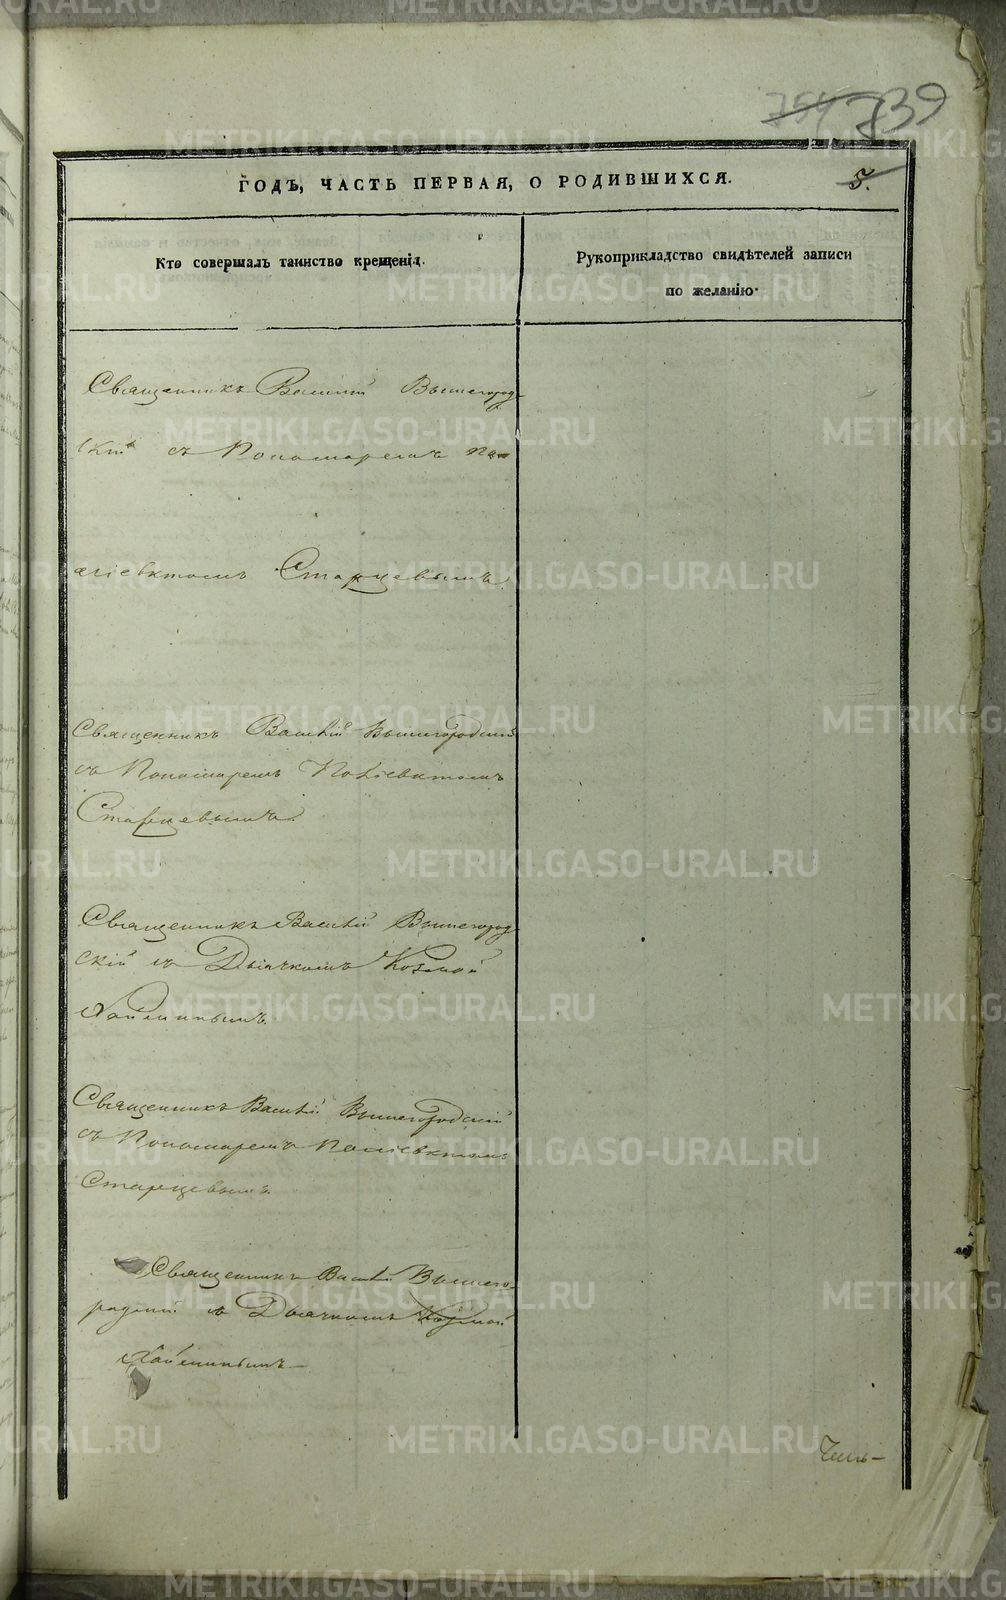 754 739
ГОДЪ, ЧАСТЬ ПЕРВАЯ, О РОДИВШИХСЯ. 5.
Кто совершалъ таинство крещенія.
Рукоприкладство свидѣтелей записи
по желанію.
Священникъ Василий Вышегород-
скій съ Пономаремъ По-
лиевктомъ Старцевымъ
Священникъ Василій Вышегородскій
съ Пономаремъ Поліевктомъ
Старцевымъ.
Священникъ Василій Вышегород-
скій съ Дьячкомъ Козмой
Священникъ Василій Вышегородскій
съ Пономаремъ Поліевктомъ
Старцевымъ.
Священникъ Василій Вышего-
родскій съ Дьячкомъ Козмой
METRIKI.GASO-URAL.RU